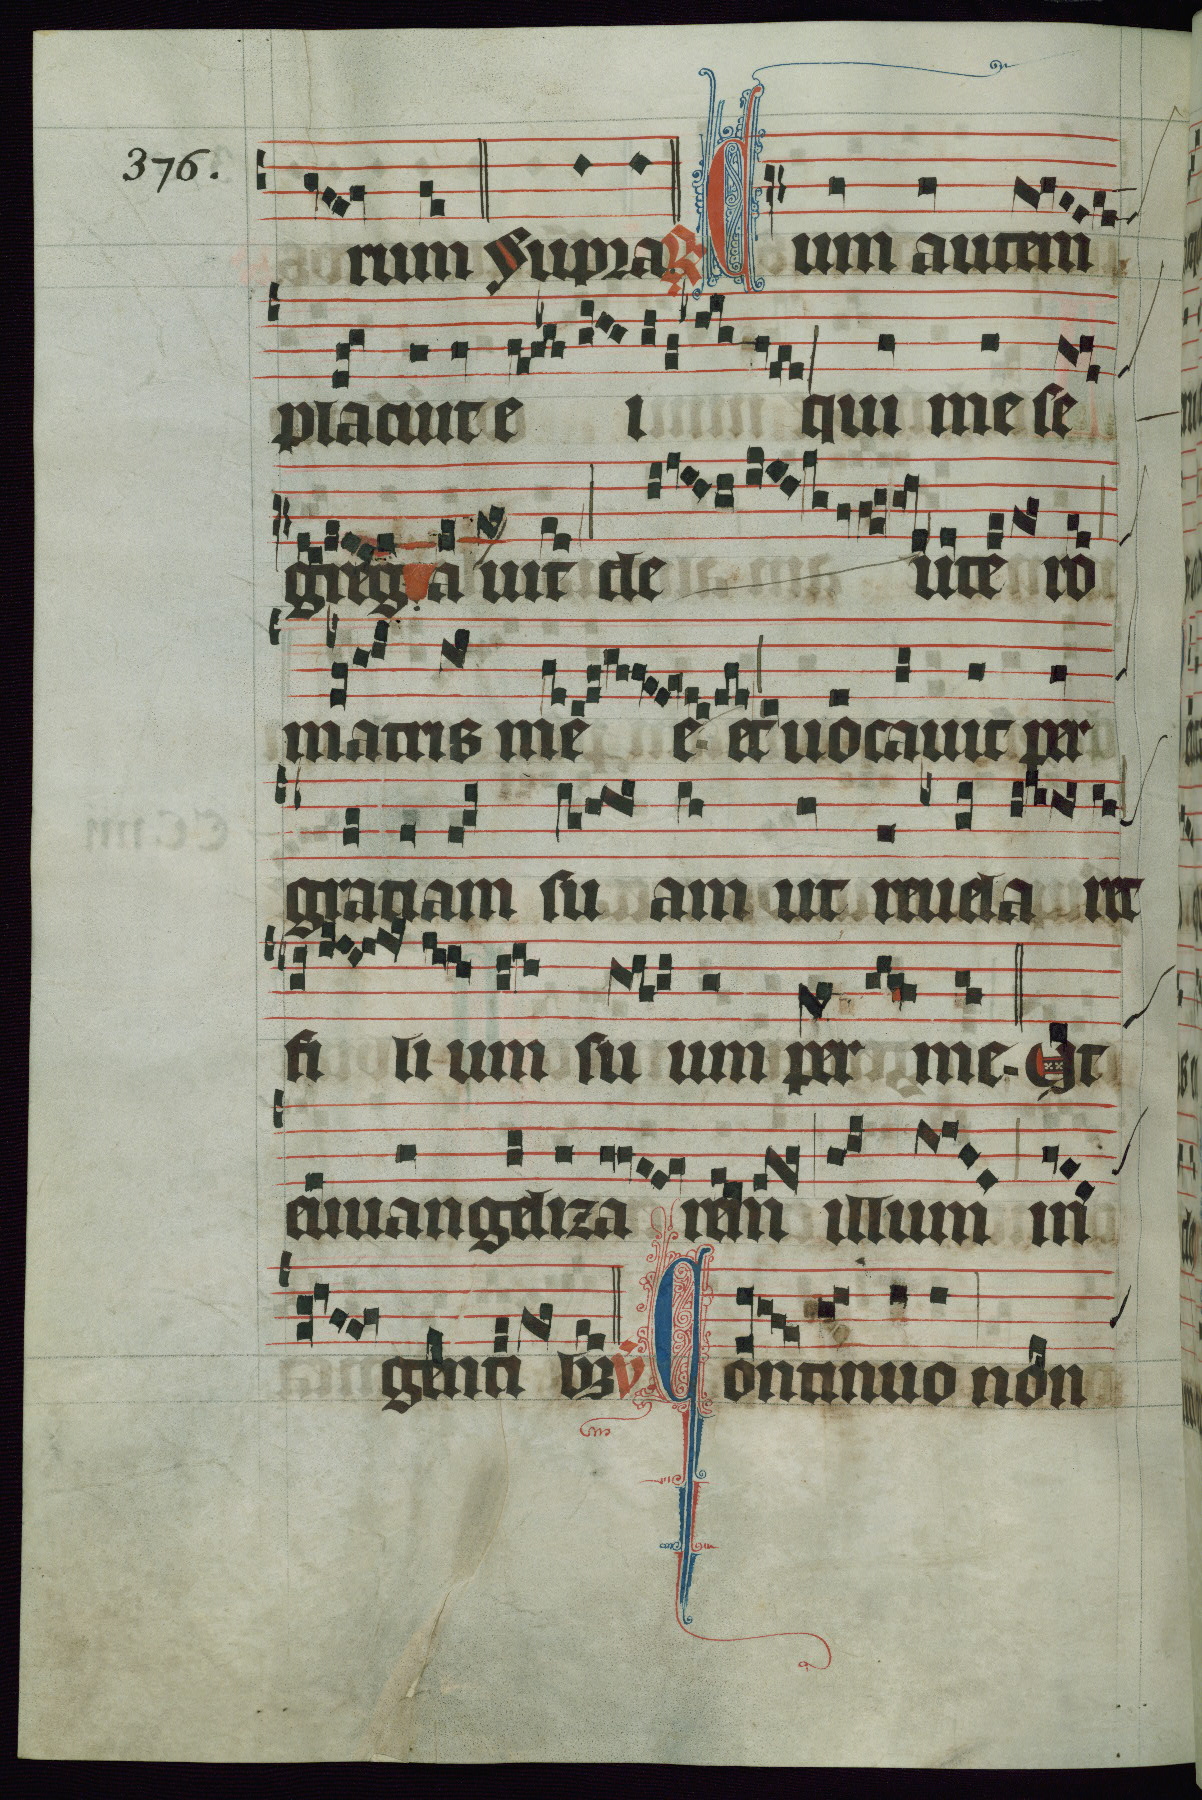 376.
rum Supra ℟ Cum autem
placuit e i qui me se
grega uit de ute ro
matris me e. et uocauit per
gratiam su am ut reuela ret
fi li um su um per me. Et
euuangeliza rem illum in
genti bʒ ℣ Continuo non